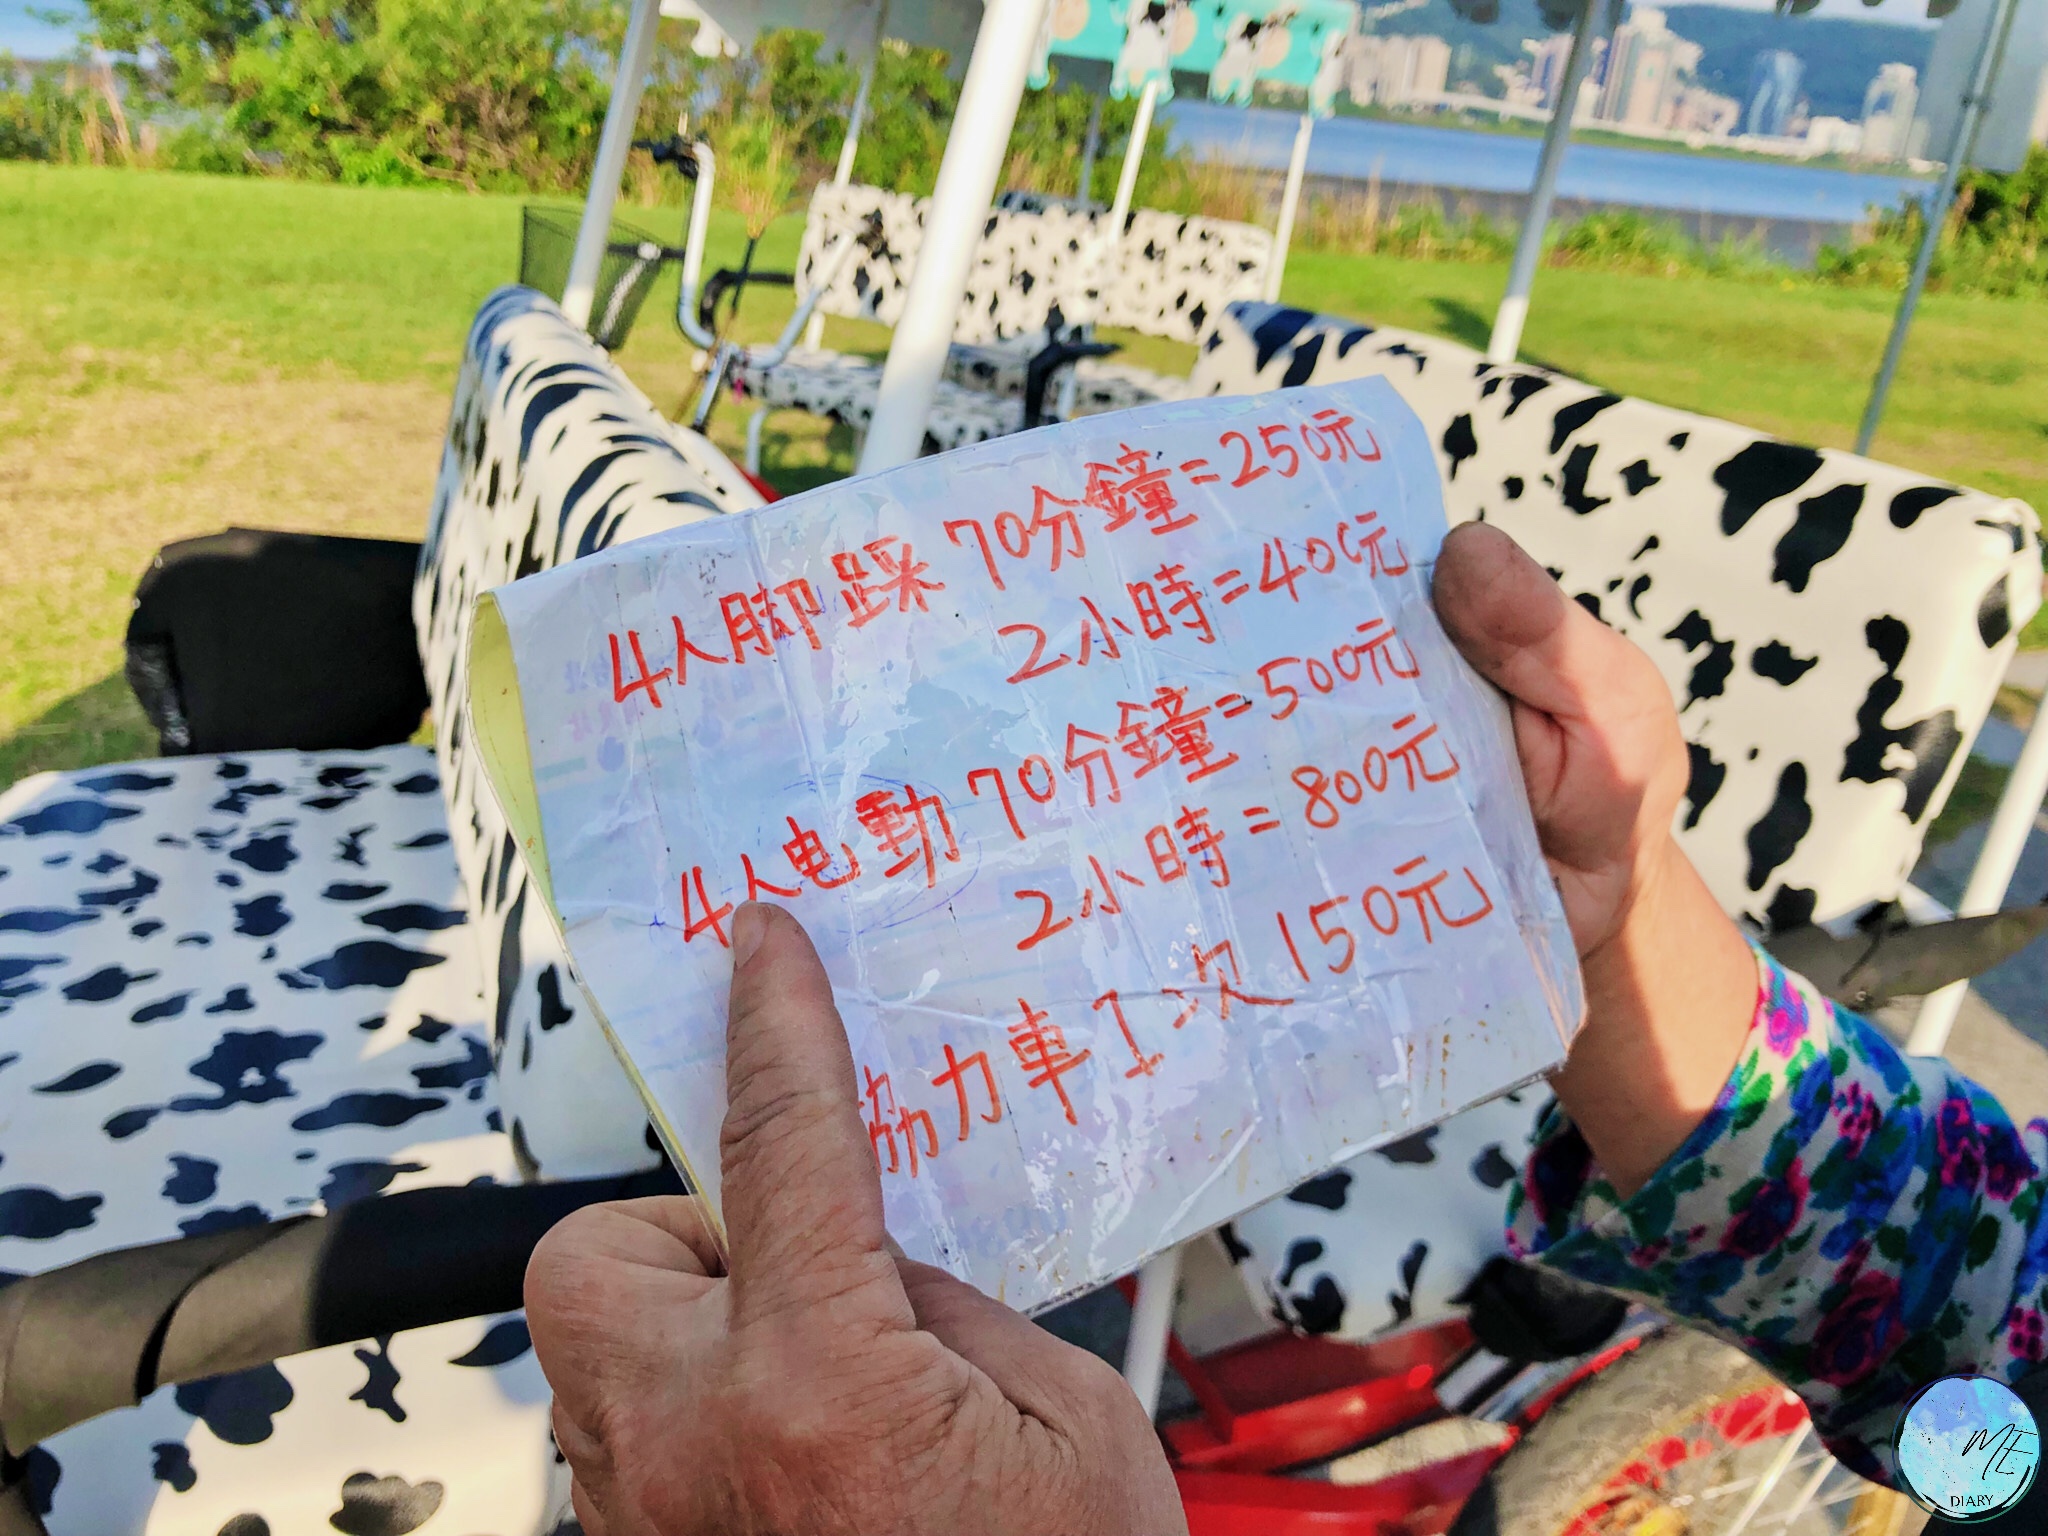 4人脚踩 70分鐘=250元
2小時=400元
4人电動 70分鐘=500元
2小時=800元
協力車1次150元
ME
DIARY